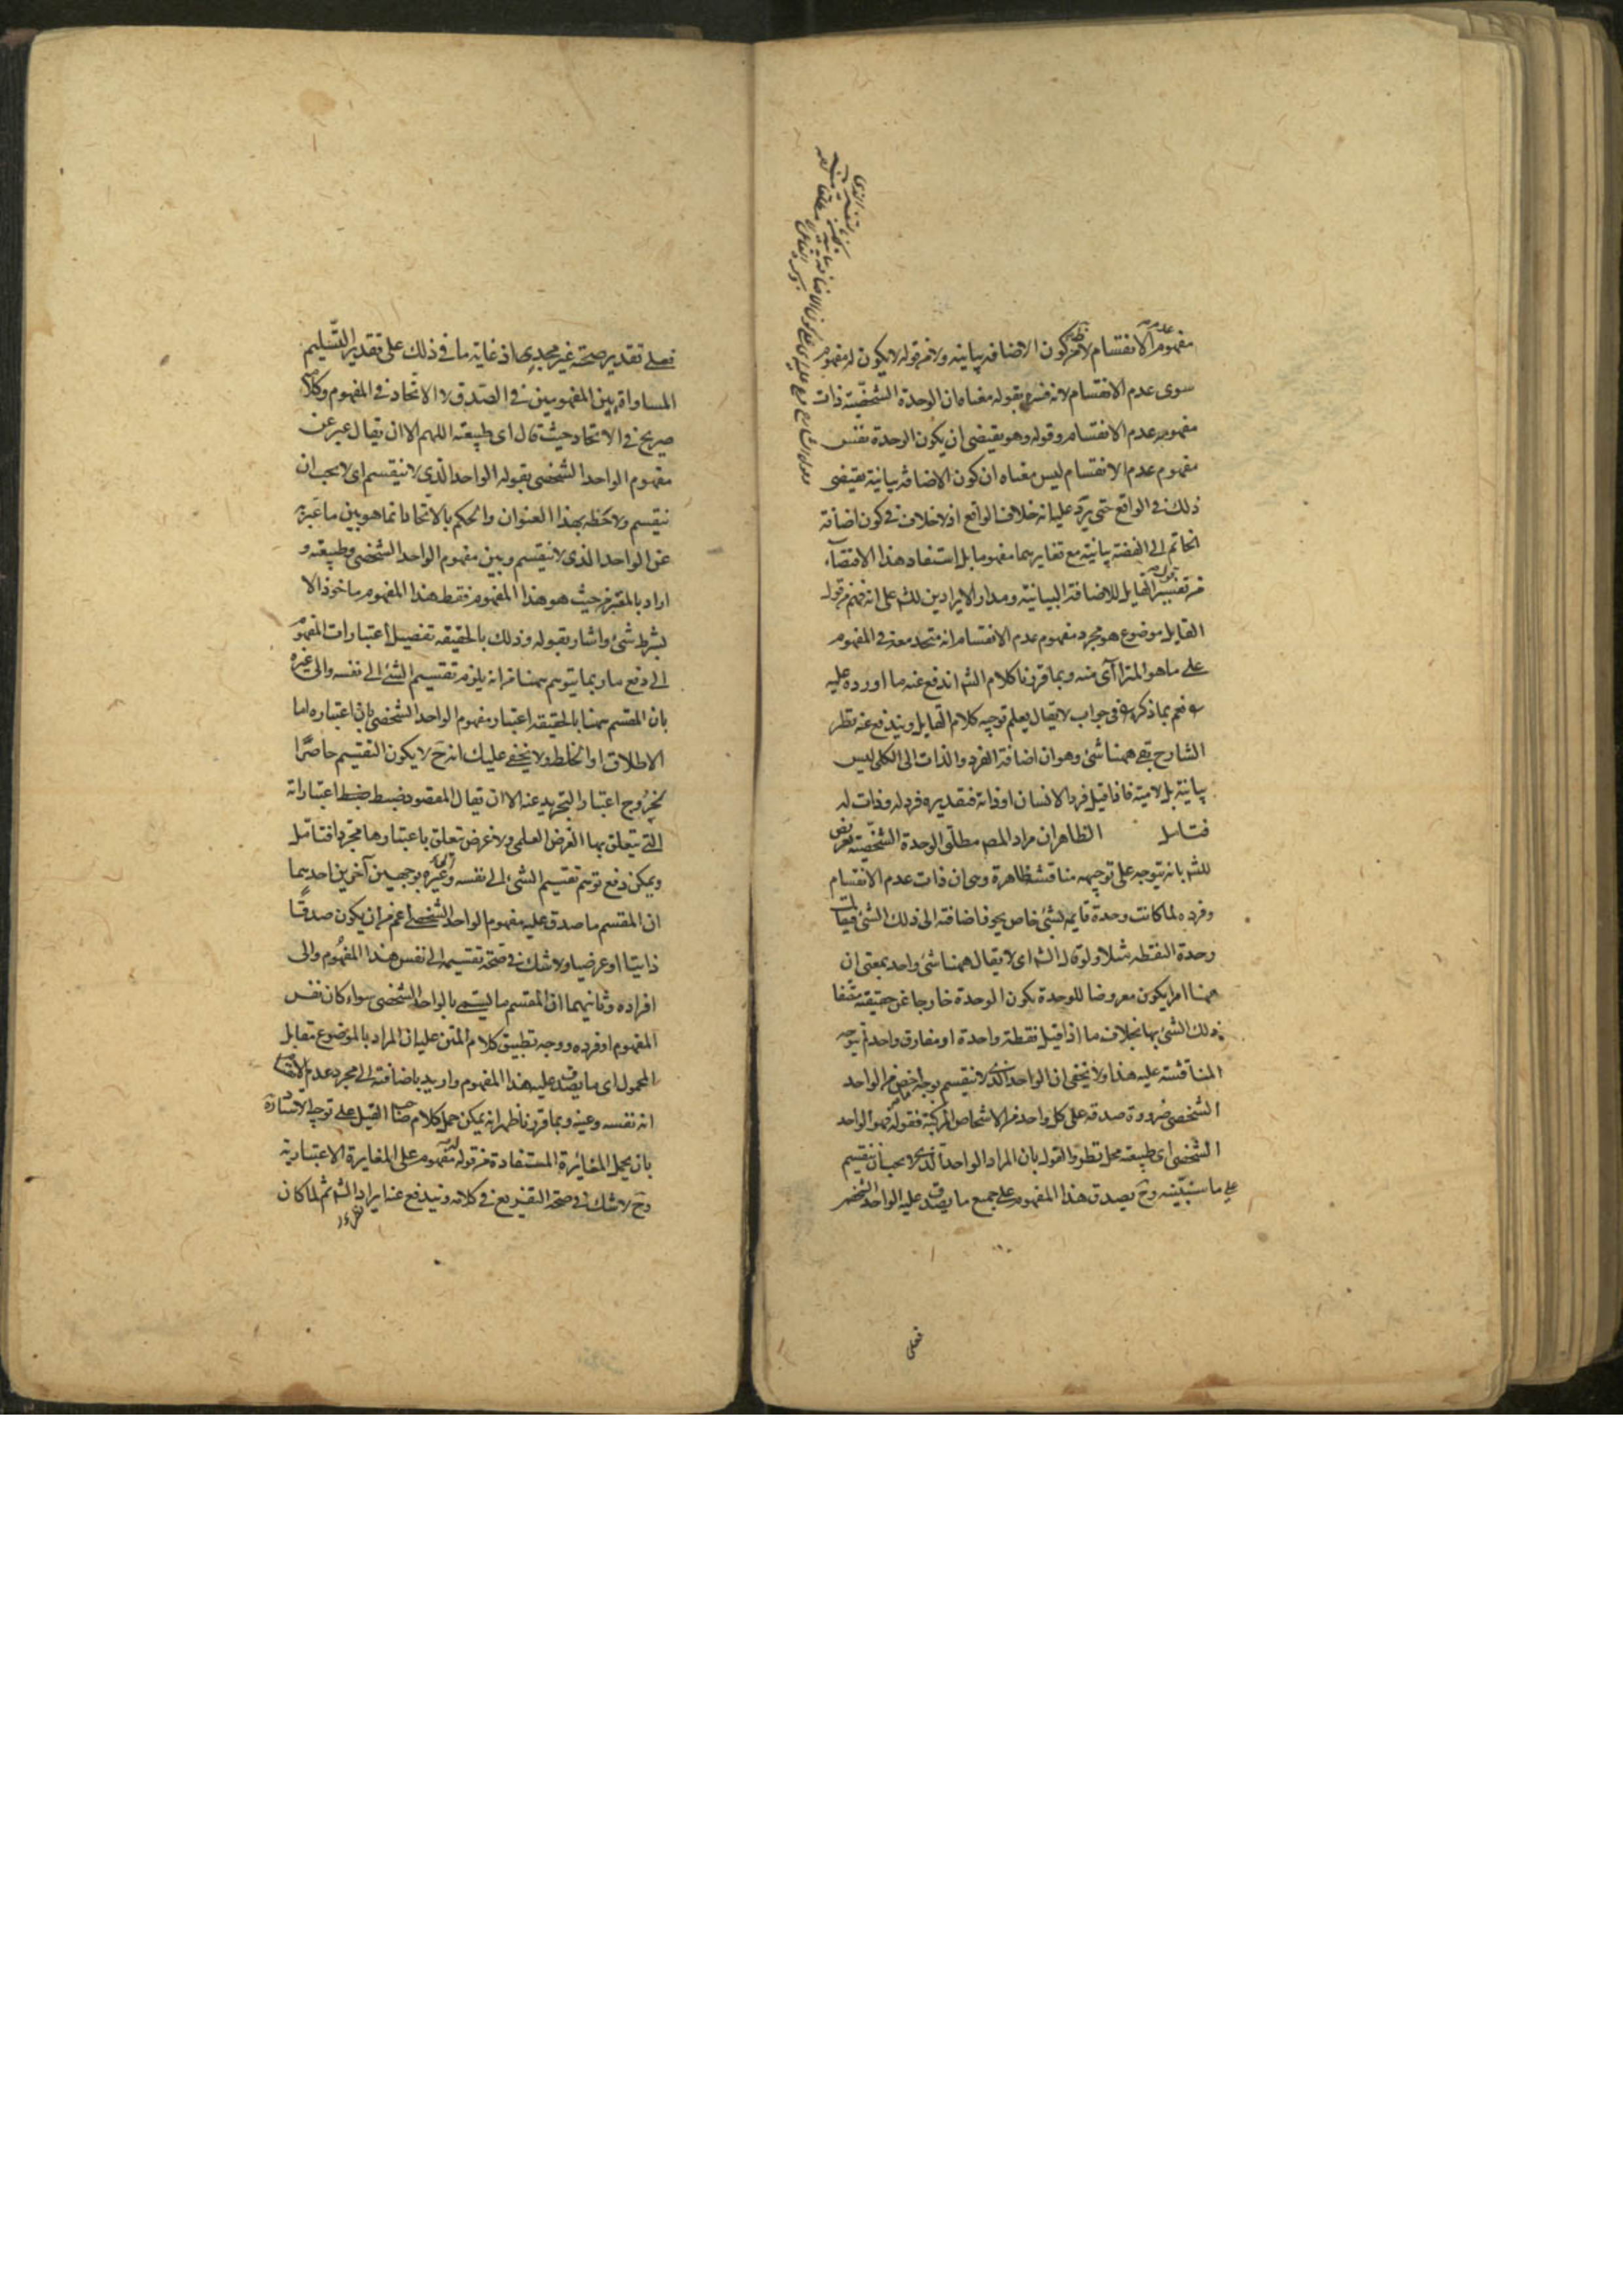 مفهوم الانقسام لا من كون الاضافه بيانيه ولا من قوله لا يكون له مفهوم
سوى عدم الانقسام لانه فسره بقوله معناه ان الوحدة الشخصية ذات
مفهوم عدم الانقسام وقوله وهو يقتضى ان يكون الوحدة نفس
مفهوم عدم الانقسام ليس معناه ان كون الاضافه بيانية يقتضى
ذلك فى الواقع حتى يرد عليه انه خلاف الواقع اذ لا خلاف فى كون اضافة
الخاتم الى الفضة بيانية مع تغايرهما مفهوما بل استفاد هذا الاقتضاء
من تفسير القايل للاضافة البيانية ومدار الايرادين للشه على انه فهم من قوله
القايل موضوع هو مجرد مفهوم عدم الانقسام انه متحد معه فى المفهوم
على ما هو المترآاى منه وبما قررنا كلام الشه اندفع عنه ما اورده عليه
نعم بما ذكره فى جواب لا يقال يعلم توجيه كلام القايل ويندفع عنه نظر
الشارح بقى ههنا شئ وهو ان اضافة الفرد والذات الى الكلى ليس
بيانية بل لامية فاذا قيل فرد الانسان او ذاته فتقديره فرد له وذات له
فتامل الظاهر ان مراد المص مطلق الوحدة الشخصية تعريض
للشه بانه يتوجه على توجيهه مناقشة ظاهرة وهى ان ذات عدم الانقسام
وفرده لما كانت وحدة قايمة بشئ خاص يجوز اضافته الى ذلك الشئ فيقال
وحدة النقطه مثلا ولو قال الشه اى لا يقال ههنا شئ واحد بمعنى ان
ههنا امر يكون معروضا للوحدة بكون الوحدة خارجا عن حقيقته متصفا
ذلك الشئ بها بخلاف ما اذا قيل نقطة واحدة او مفارق واحد لم يتوجه
المناقشة عليه هذا ولا يخفى ان الواحد الذى لا ينقسم بوجه اخص من الواحد
الشخصى ضرورة صدقه على كل واحد من الاشخاص المركبة فقوله فهو الواحد
الشخصى اى طبيعته محل نظر والقول بان المراد الواحد الذى لا يجب ان ينقسم
على ما سنبينه وح يصدق هذا المفهوم على جميع ما يصدق عليه الواحد الشخصى
فعلى
فعلى تقدير صحته غير مجدى اذ غاية ما فى ذلك على تقدير التسليم
المساواة بين المفهومين فى الصدق لا الاتحاد فى المفهوم وكلامه
صريح فى الاتحاد حيث قال اى طبيعته اللهم الا ان يقال عبر عن
مفهوم الواحد الشخصى بقوله الواحد الذى لا ينقسم اى لا يجب ان
ينقسم ولاحظه بهذا العنوان والحكم بالاتحاد انما هو بين ما عبر به
عن الواحد الذى لا ينقسم وبين مفهوم الواحد الشخصى وطبيعته و
اراد بالمقيد من حيث هو هذا المفهوم فقط هذا المفهوم ماخوذا لا
بشرط شئ واشار بقوله وذلك بالحقيقه تفصيل اعتبارات المفهوم
الى دفع ما ربما يتوهم ههنا من انه يلزم تقسيم الشئ الى نفسه والى غيره
بان المقسم ههنا بالحقيقه اعتبار مفهوم الواحد الشخصى بان اعتباره اما
الاطلاق او الخلط ولا يخفى عليك انه ح لا يكون التقسيم حاصرا
لخروج اعتبار التجريد عنه الا ان يقال المقصود ضبط اعتباراته
التى يتعلق بها الغرض العلمى ولا غرض يتعلق باعتبارها مجردا فتامل
ويمكن دفع توهم تقسيم الشئ الى نفسه وغيره بوجهين آخرين احدهما
ان المقسم ما صدق عليه مفهوم الواحد الشخصى اعم من ان يكون صدقا
ذاتيا او عرضيا ولا شك فى صحة تقسيمه الى نفس هذا المفهوم والى
افراده وثانيهما ان المقسم ما يسمى بالواحد الشخصى سواء كان نفس
المفهوم او فرده ووجه تطبيق كلام المتن عليه ان المراد بالموضوع مقابل
المحمول اى ما يصدق عليه هذا المفهوم واريد باضافته الى مجرد عدم الانقسام
انه نفسه وعينه وبما قررنا ظهر انه يمكن حمل كلام صاحب القيل على توجيه الاشارة
بان يحمل المغائرة المستفادة من قوله له مفهوم على المغايرة الاعتبارية
وح لا شك فى صحة التفريع فى كلامه ويندفع عنه ايراد الشه ثم لما كان